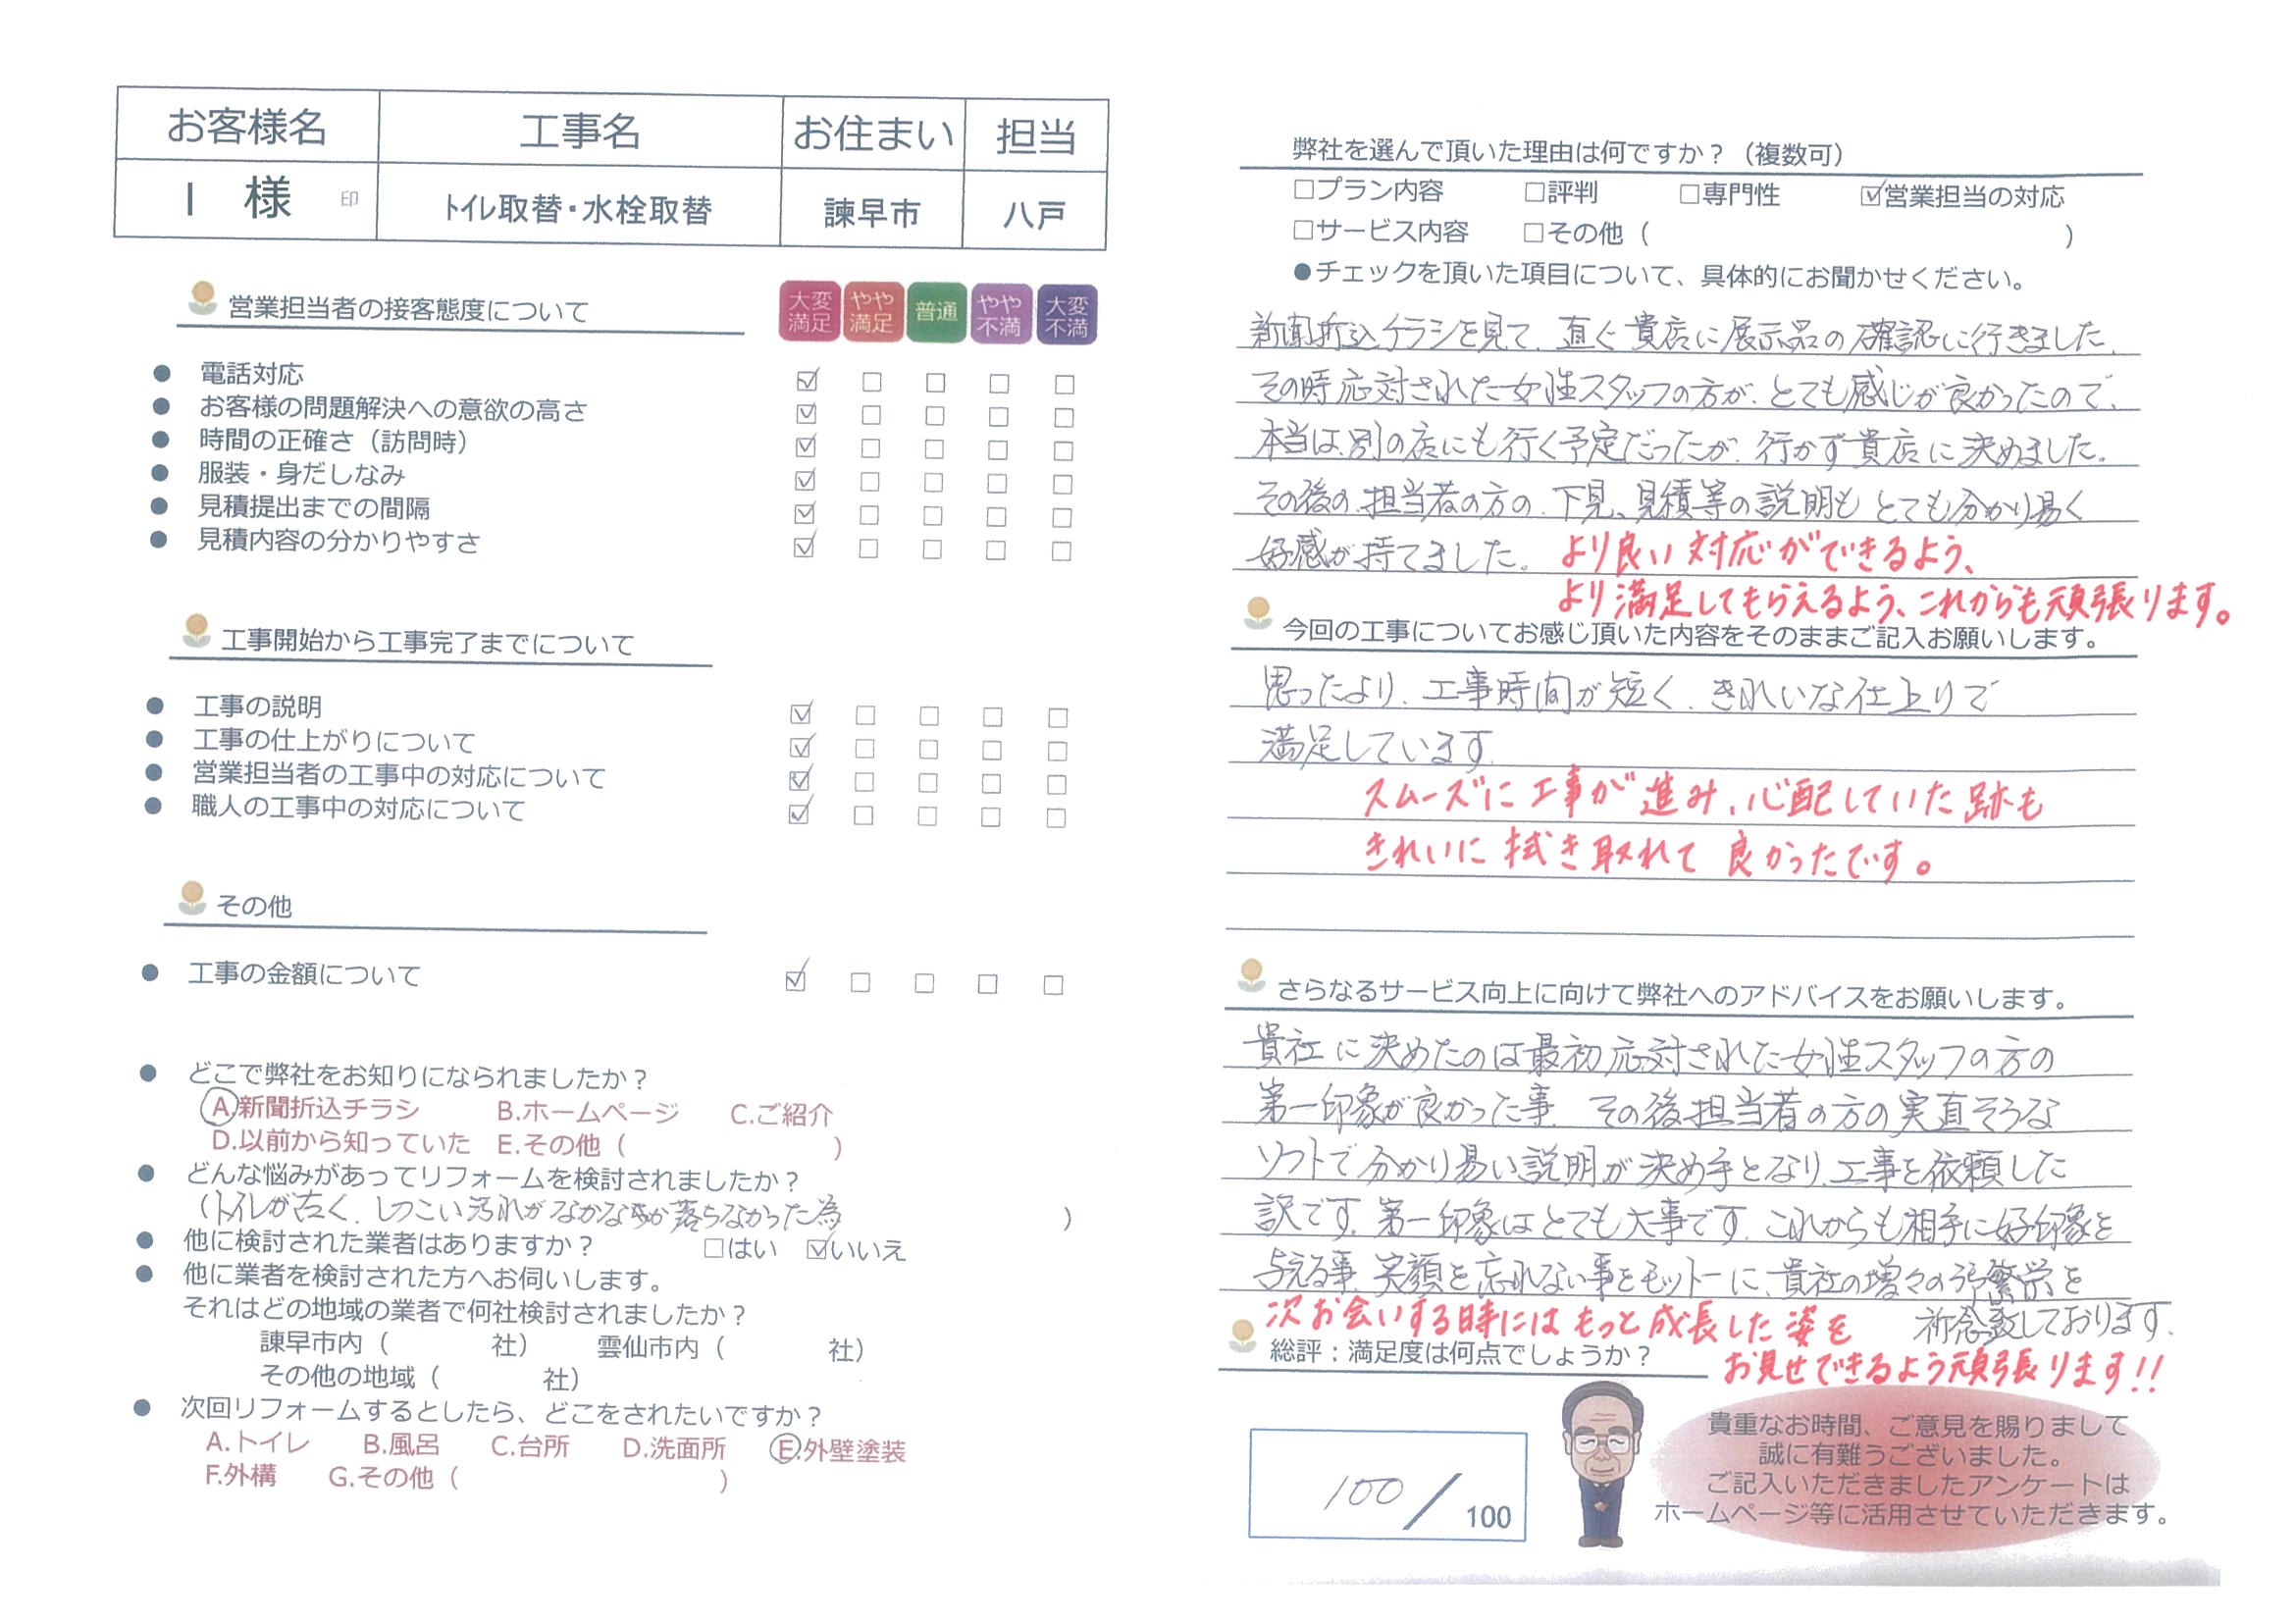 お客様名 工事名 お住まい 担当
I 様 印 トイレ取替・水栓取替 諫早市 八戸
営業担当者の接客態度について 大変満足 やや満足 普通 やや不満 大変不満
● 電話対応 ☑ □ □ □ □
● お客様の問題解決への意欲の高さ ☑ □ □ □ □
● 時間の正確さ（訪問時） ☑ □ □ □ □
● 服装・身だしなみ ☑ □ □ □ □
● 見積提出までの間隔 ☑ □ □ □ □
● 見積内容の分かりやすさ ☑ □ □ □ □
工事開始から工事完了までについて
● 工事の説明 ☑ □ □ □ □
● 工事の仕上がりについて ☑ □ □ □ □
● 営業担当者の工事中の対応について ☑ □ □ □ □
● 職人の工事中の対応について ☑ □ □ □ □
その他
● 工事の金額について ☑ □ □ □ □
● どこで弊社をお知りになられましたか？
A.新聞折込チラシ B.ホームページ C.ご紹介
D.以前から知っていた E.その他（ ）
● どんな悩みがあってリフォームを検討されましたか？
（トイレが古く、しつこい汚れがなかなか落らなかった為 ）
● 他に検討された業者はありますか？ □はい ☑いいえ
● 他に業者を検討された方へお伺いします。
それはどの地域の業者で何社検討されましたか？
諫早市内（ 社） 雲仙市内（ 社）
その他の地域（ 社）
● 次回リフォームするとしたら、どこをされたいですか？
A.トイレ B.風呂 C.台所 D.洗面所 E.外壁塗装
F.外構 G.その他（ ）
弊社を選んで頂いた理由は何ですか？（複数可）
□プラン内容 □評判 □専門性 ☑営業担当の対応
□サービス内容 □その他（ ）
●チェックを頂いた項目について、具体的にお聞かせください。
新聞折込チラシを見て、直ぐ貴店に展示品の確認に行きました。
その時応対された女性スタッフの方が、とても感じが良かったので、
本当は、別の店にも行く予定だったが、行かず貴店に決めました。
その後の、担当者の方の、下見、見積等の説明も とても分かり易く
好感が持てました。 より良い対応ができるよう、
より満足してもらえるよう、これからも頑張ります。
今回の工事についてお感じ頂いた内容をそのままご記入お願いします。
思ったより、工事時間が短く、きれいな仕上りで
満足しています。
スムーズに工事が進み、心配していた跡も
きれいに拭き取れて良かったです。
さらなるサービス向上に向けて弊社へのアドバイスをお願いします。
貴社に決めたのは最初応対された女性スタッフの方の
第一印象が良かった事、その後担当者の方の実直そうな
ソフトで分かり易い説明が決め手となり、工事を依頼した
訳です。第一印象はとても大事です。これからも相手に好印象を
与える事、笑顔を忘れない事をモットーに、貴社の増々の繁栄を
祈念致しております。
次お会いする時にはもっと成長した姿を
お見せできるよう頑張ります!!
総評：満足度は何点でしょうか？
100／100
貴重なお時間、ご意見を賜りまして
誠に有難うございました。
ご記入いただきましたアンケートは
ホームページ等に活用させていただきます。